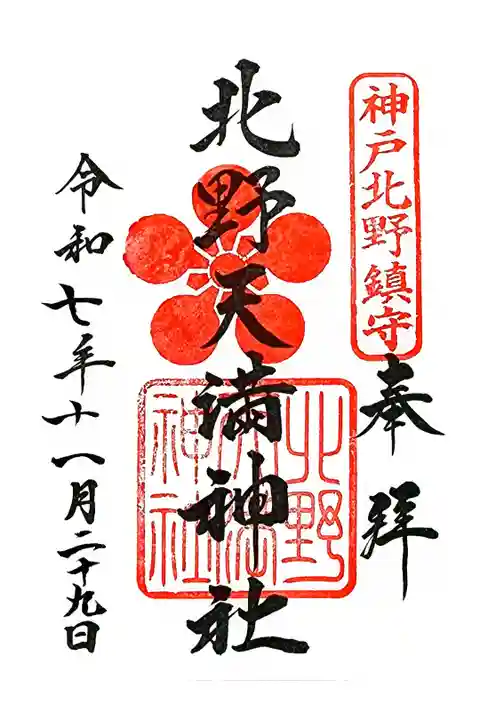 神戸北野鎮守
奉拝
北野天満神社
北野天満神社
令和七年十一月二十九日